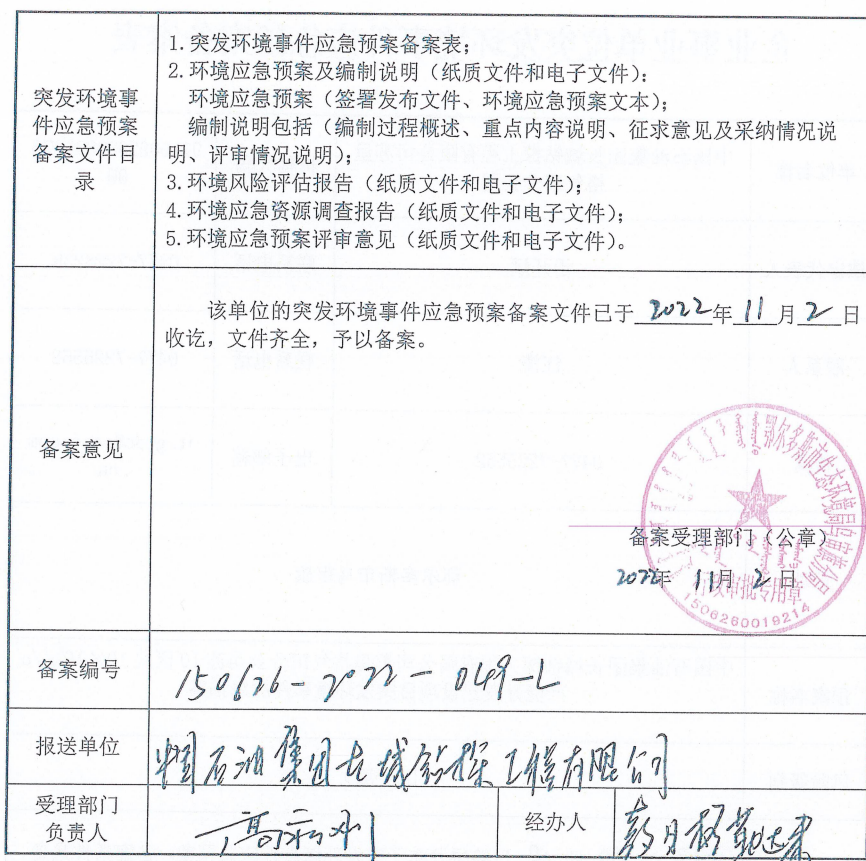 突发环境事
件应急预案
备案文件目
录
1.突发环境事件应急预案备案表；
2.环境应急预案及编制说明（纸质文件和电子文件）：
环境应急预案（签署发布文件、环境应急预案文本）；
编制说明包括（编制过程概述、重点内容说明、征求意见及采纳情况说
明、评审情况说明）；
3.环境风险评估报告（纸质文件和电子文件）；
4.环境应急资源调查报告（纸质文件和电子文件）；
5.环境应急预案评审意见（纸质文件和电子文件）。
备案意见
该单位的突发环境事件应急预案备案文件已于2022年11月2日
收讫，文件齐全，予以备案。
鄂尔多斯市生态环境局乌审旗分局
备案受理部门（公章）
2022年 11月 2日
行政审批专用章
1506260019214
备案编号
150626-2022-049-L
报送单位
中国石油集团长城钻探工程有限公司
受理部门
负责人
经办人